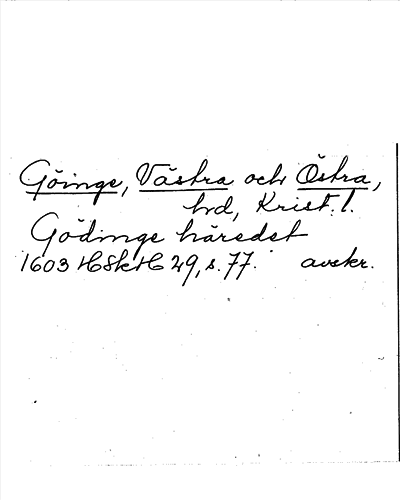 Göinge, Västra och Östra,
hd, Krist. l.
Gödinge häredet
1603 HSkH 29, s. 77. avskr.